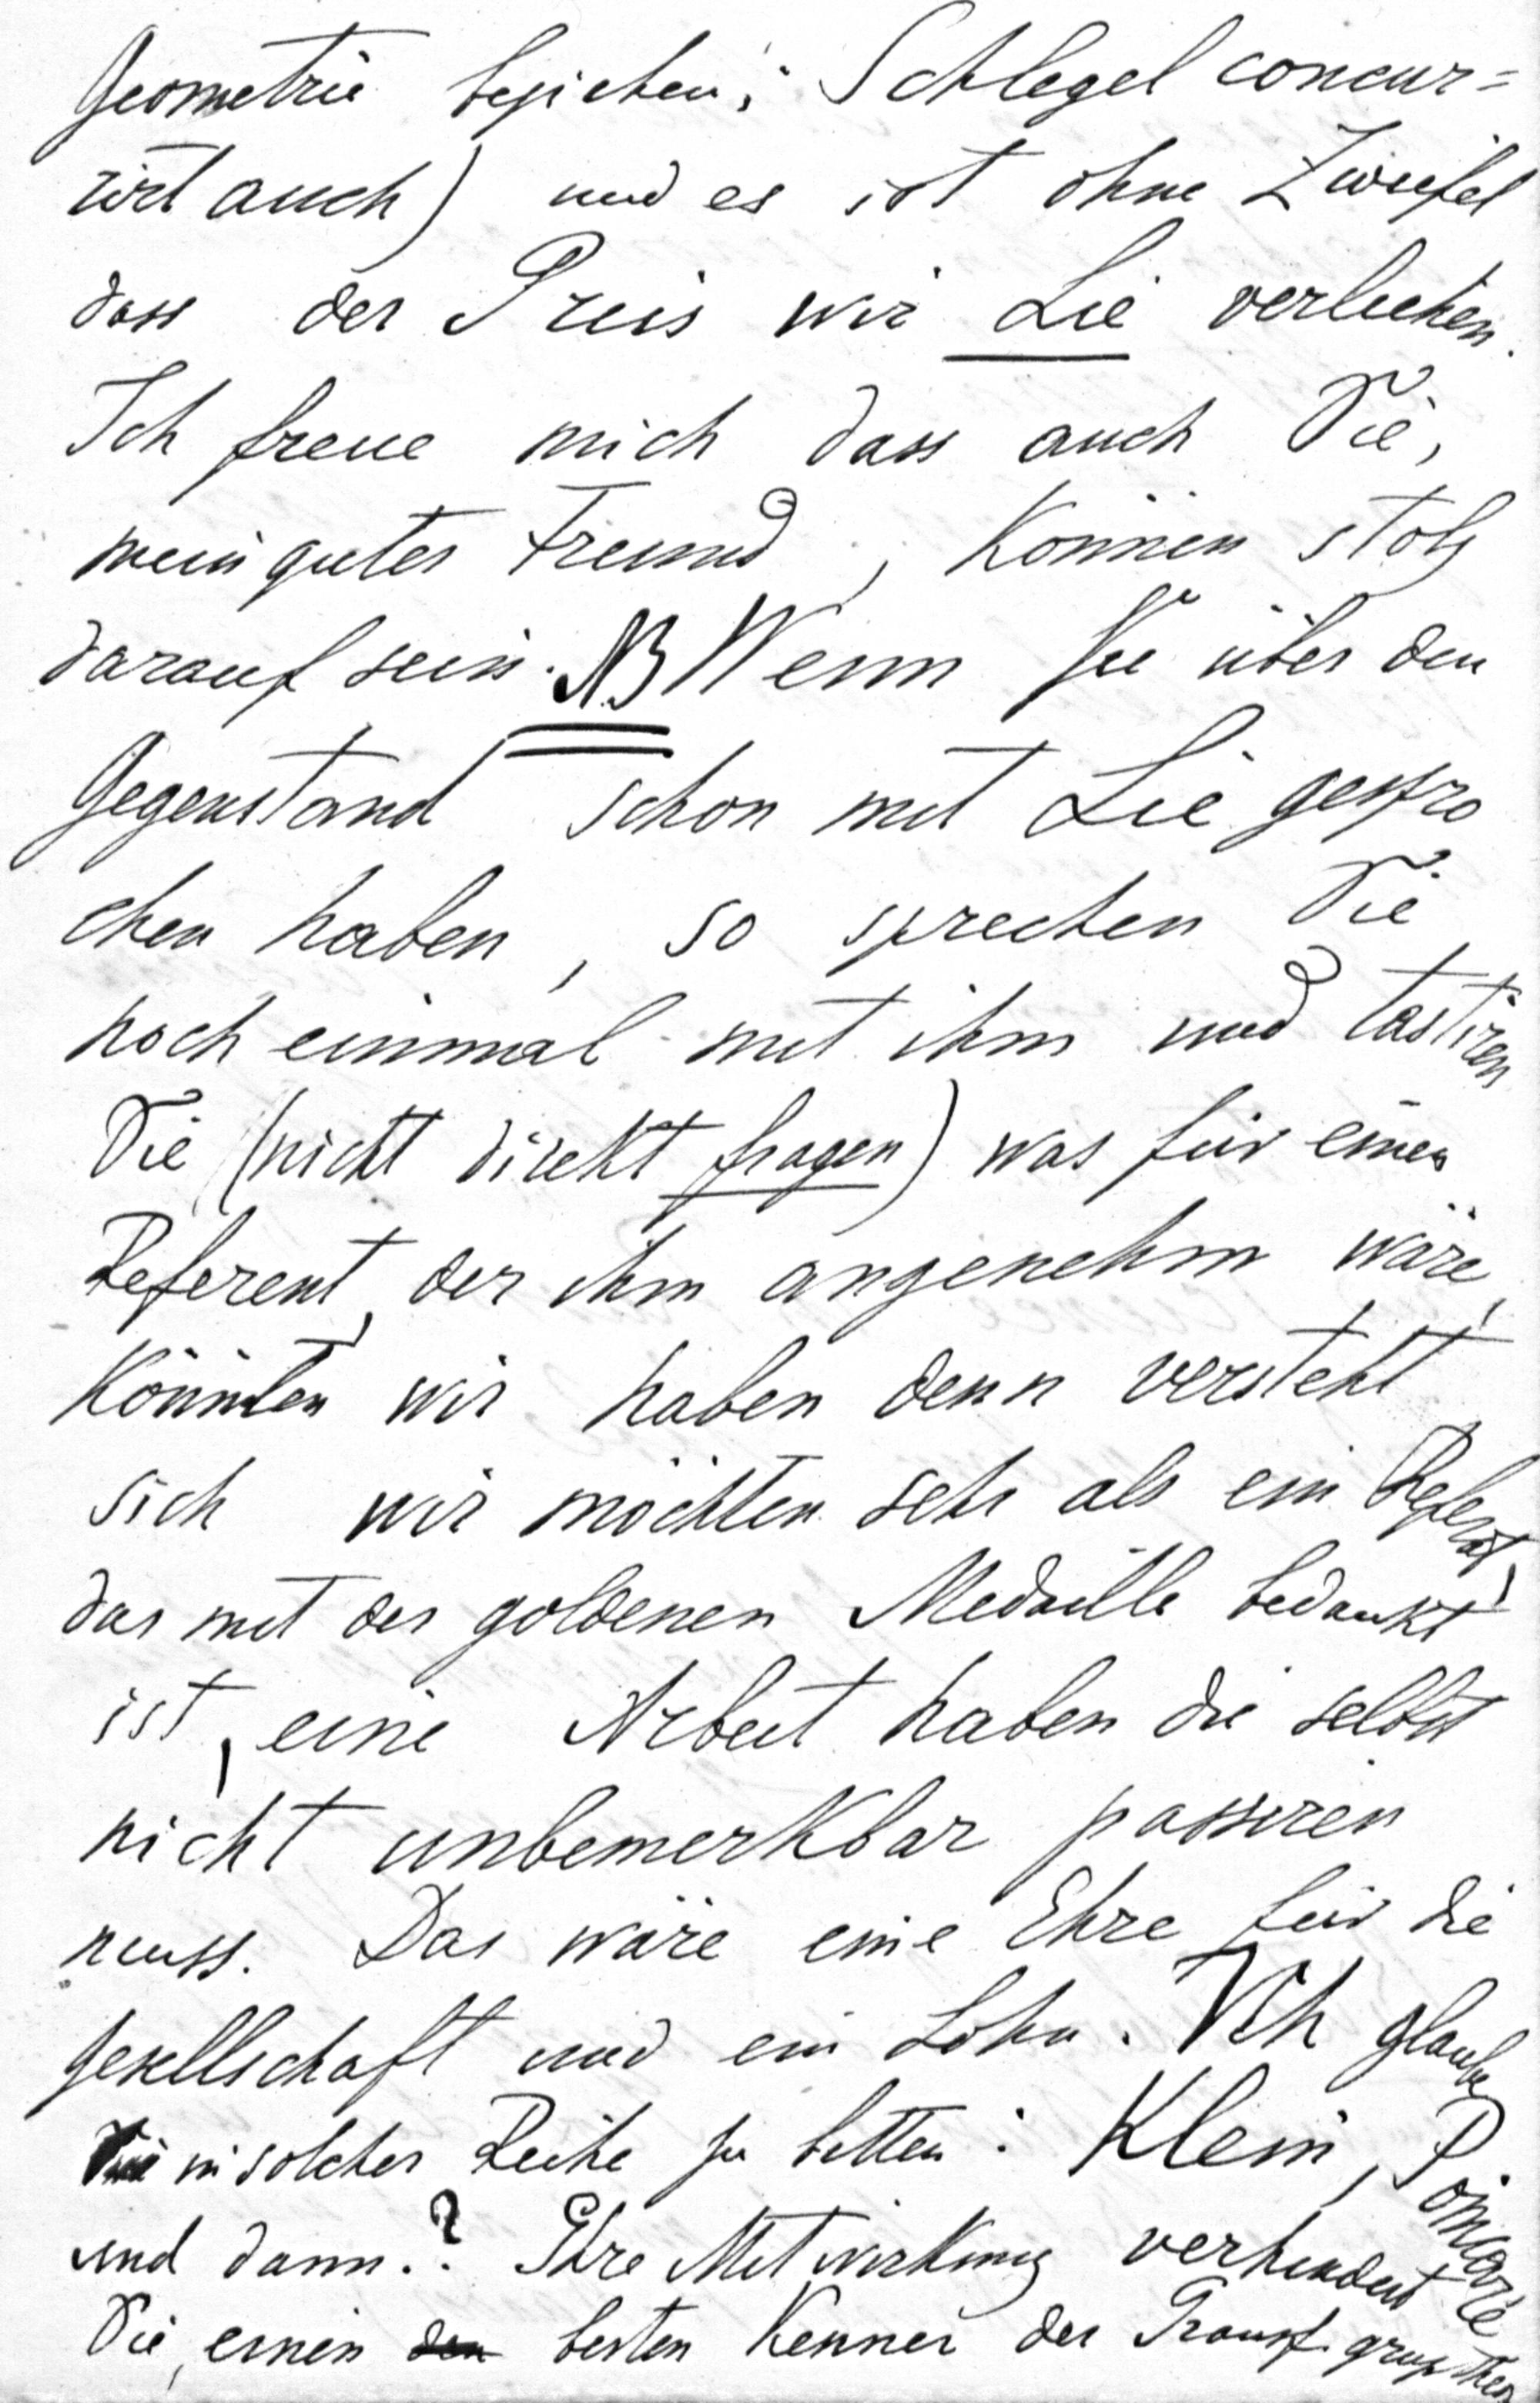 Geometrie beziehen; Schlegel concur=
rirt auch) und es ist ohne Zweifel
dass der Preis wir Lie verleihen.
Ich freue mich dass auch Sie,
mein guter Freund, können stolz
darauf sein. NB Wenn Sie über den
Gegenstand schon mit Lie gespro
chen haben, so sprechen Sie
noch einmal mit ihm und tastiren
Sie (nicht direkt fragen) was für einen
Referent, der ihm angenehm wäre,
könnten wir haben denn versteht
sich wir möchten sehr als ein Referat,
das mit der goldenen Medaille bedankt
ist, eine Arbeit haben die selbst
nicht unbemerkbar passiren
muss. Das wäre eine Ehre für die
Gesellschaft und ein Lohn. Ich glaube
in solcher Reihe zu bitten: Klein, Poincaré
und dann..? Ihre Mitwirkung verhindert
Sie, einen den besten Kenner der Transf. gruppen